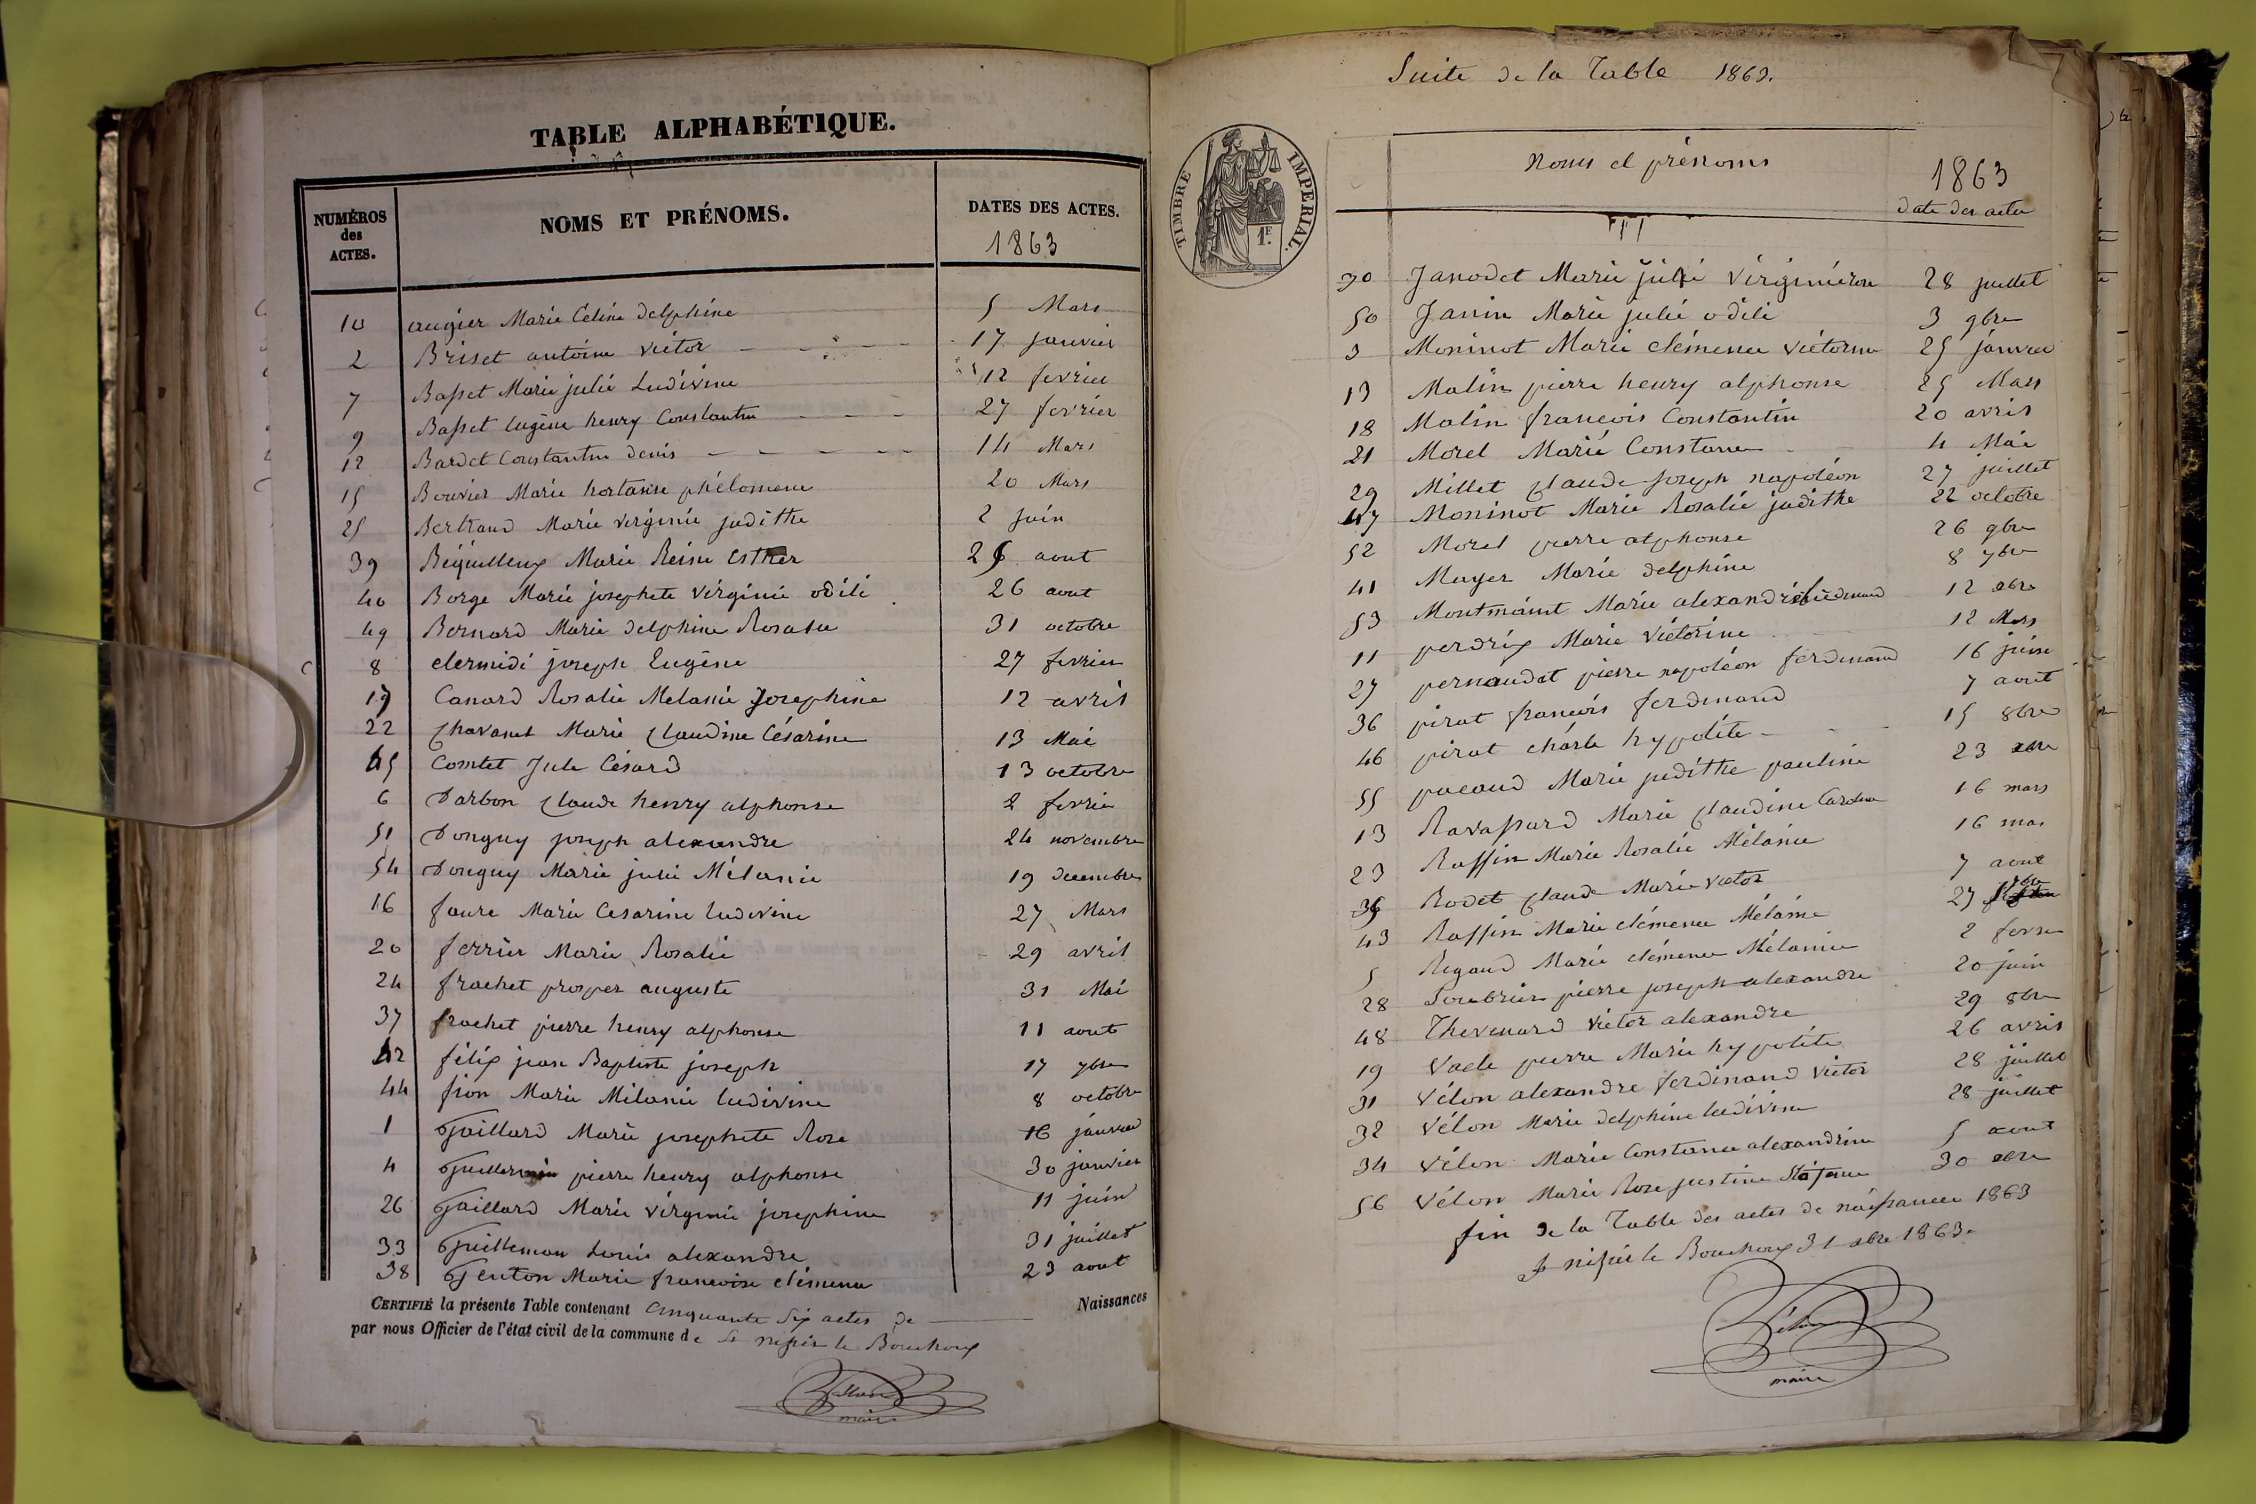 TABLE ALPHABÉTIQUE.
NUMÉROS des ACTES.
NOMS ET PRÉNOMS.
DATES DES ACTES.
1863
10 augier Marie Céline delphine 5 Mars
2 Briset antoine victor 17 janvier
7 Basset Marie julie Ludivine 12 fevrier
9 Basset Eugène henry Constantin 27 fevrier
12 Bardet Constantin denis 14 Mars
15 Bouvier Marie hortanse phélomene 20 Mars
25 Bertrand Marie virginie judithe 2 juin
39 Béquilleux Marie Reine Esther 26 aout
40 Borge Marie josephete virginie odile 26 aout
49 Bernard Marie delphine Rosalie 31 octobre
8 clermidi joseph Eugène 27 fevrier
17 Canard Rosalie Melanie Josephine 12 avril
22 Chavanet Marie Claudine Césarine 13 Mai
45 Comtet Jule Césard 13 octobre
6 Darbon Claude henry alphonse 2 fevrier
51 Donguy joseph alexandre 24 novembre
54 Donguy Marie julie Mélanie 19 decembre
16 faure Marie Cesarine ludivine 27 Mars
20 ferrier Marie Rosalie 29 avril
24 frachet prosper auguste 31 Mai
37 frachet pierre henry alphonse 11 aout
42 félix jean Baptiste joseph 17 7bre
44 fion Marie Mélanie ludivine 8 octobre
1 Gaillard Marie josephete Rose 16 janvier
4 Guillermin pierre henry alphonse 30 janvier
26 Gaillard Marie virginie josephine 11 juin
33 Guilleman Louis alexandre 31 juillet
38 Genton Marie francoise clémence 23 aout
CERTIFIÉ la présente Table contenant Cinquante Six actes de Naissances
par nous Officier de l'état civil de la commune de St nisier le Bouchoux
maire
Suite de la Table 1863.
TIMBRE IMPÉRIAL.
1E.
Noms et prénoms
1863
date des actes
30 Janodet Marie julie virginie rose 28 juillet
50 Janin Marie julie odile 3 9bre
3 Moninot Marie clémence victorine 25 janvier
13 Malin pierre henry alphonse 25 Mars
18 Malin francois Constantin 20 avril
21 Morel Marie Constance 4 Mai
29 Millet Claude joseph napoléon 27 juillet
47 Moninot Marie Rosalie judithe 22 octobre
52 Morel pierre alphonse 26 9bre
41 Mayer Marie delphine 8 7bre
53 Montmaint Marie alexandre 12 xbre
11 perdrix Marie victorine 12 Mars
27 pernaudat pierre napoléon ferdinand 16 juin
36 pirat francois ferdinand 7 aout
46 pirat charle hypolite 15 8bre
55 pacaud Marie judithe pauline 23 xbre
13 Ravassard Marie Claudine Caroline 16 mars
23 Raffin Marie Rosalie Mélanie 16 mai
35 Rodet Claude Marie victor 7 aout
43 Raffin Marie clémence Mélanie 27 7bre
5 Rigaud Marie clémence Mélanie 2 fevrier
28 Soubrier pierre joseph alexandre 20 juin
48 Thevenard victor alexandre 29 8bre
19 vacle pierre Marie hypolite 26 avril
31 Vélon alexandre ferdinand victor 28 juillet
32 Vélon Marie delphine ludivine 28 juillet
34 Vélon Marie Constance alexandrine 5 aout
56 Vélon Marie Rose justine 30 xbre
fin de la Table des actes de naissances 1863
St nisier le Bouchoux 31 xbre 1863.
Vélon
maire